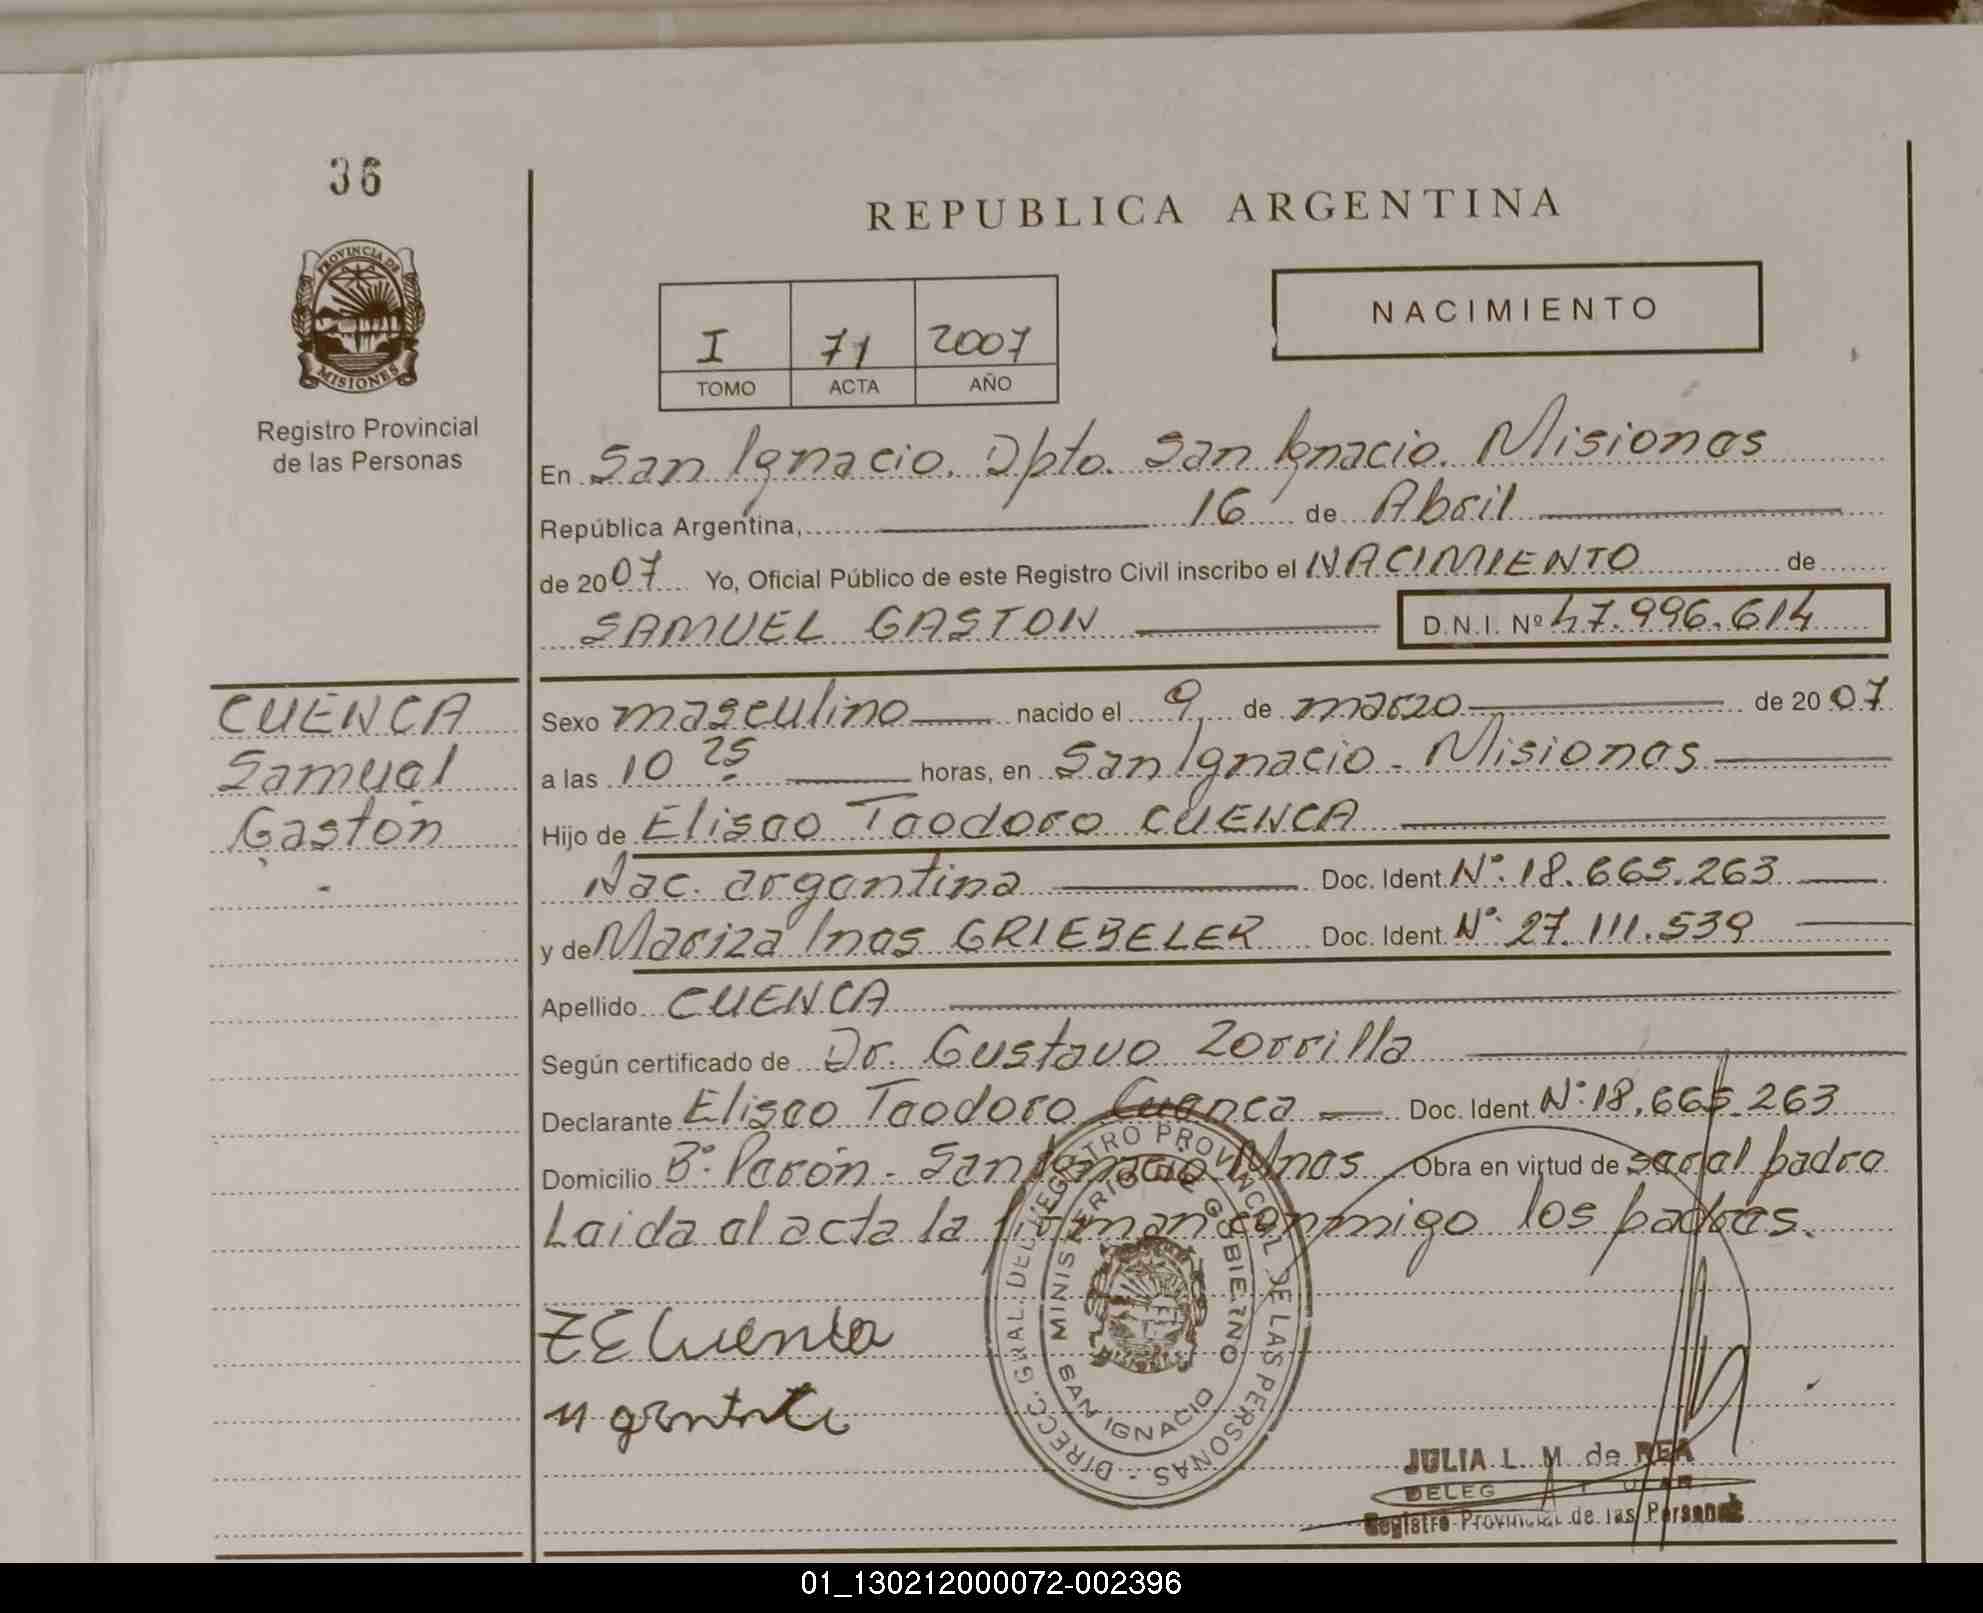 36
REPUBLICA ARGENTINA
PROVINCIA DE
MISIONES
Registro Provincial
de las Personas
I 71 2007
TOMO ACTA AÑO
NACIMIENTO
En San Ignacio. Dpto. San Ignacio. Misiones
República Argentina, 16 de Abril
de 2007 Yo, Oficial Público de este Registro Civil inscribo el NACIMIENTO de
SAMUEL GASTON D.N.I. Nº 47.996.614
CUENCA
Samuel
Gastón
Sexo masculino nacido el 9 de marzo de 2007
a las 10 25 horas, en San Ignacio - Misiones
Hijo de Eliseo Teodoro CUENCA
Nac. argentina Doc. Ident. Nº 18.665.263
y de Mariza Ines GRIEBELER Doc. Ident. Nº 27.111.539
Apellido CUENCA
Según certificado de Dr. Gustavo Zorrilla
Declarante Eliseo Teodoro Cuenca Doc. Ident. Nº 18.665.263
Domicilio Bº Perón - San Ignacio Mnes Obra en virtud de ser el padre
Leida el acta la firman conmigo los padres.
Cuenca
DIRECC. GRAL. DEL REGISTRO PROVINCIAL DE LAS PERSONAS -
MINISTERIO DE GOBIERNO
SAN IGNACIO
JULIA L. M. de REA
DELEG
Registro Provincial de las Personas
01_130212000072-002396